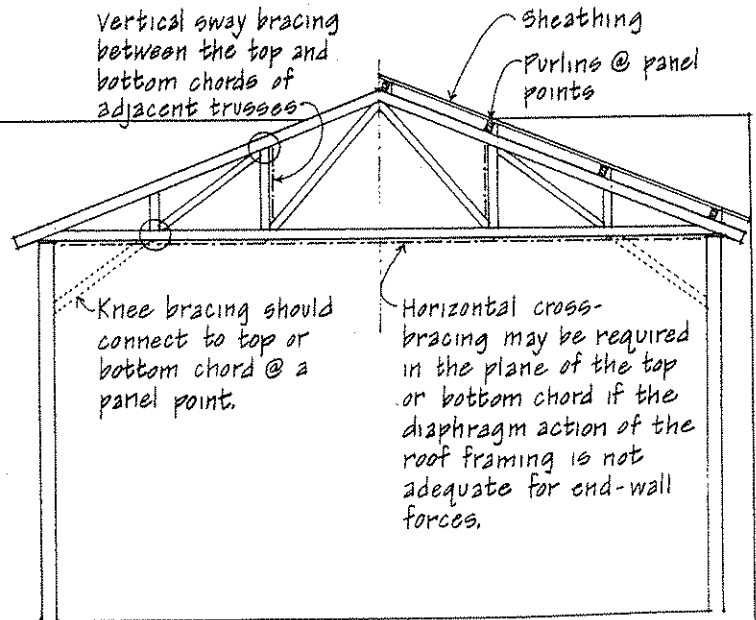 Vertical sway bracing
between the top and
bottom chords of
adjacent trusses
Sheathing
Purlins @ panel
points
Knee bracing should
connect to top or
bottom chord @ a
panel point.
Horizontal cross-
bracing may be required
in the plane of the top
or bottom chord if the
diaphragm action of the
roof framing is not
adequate for end-wall
forces.